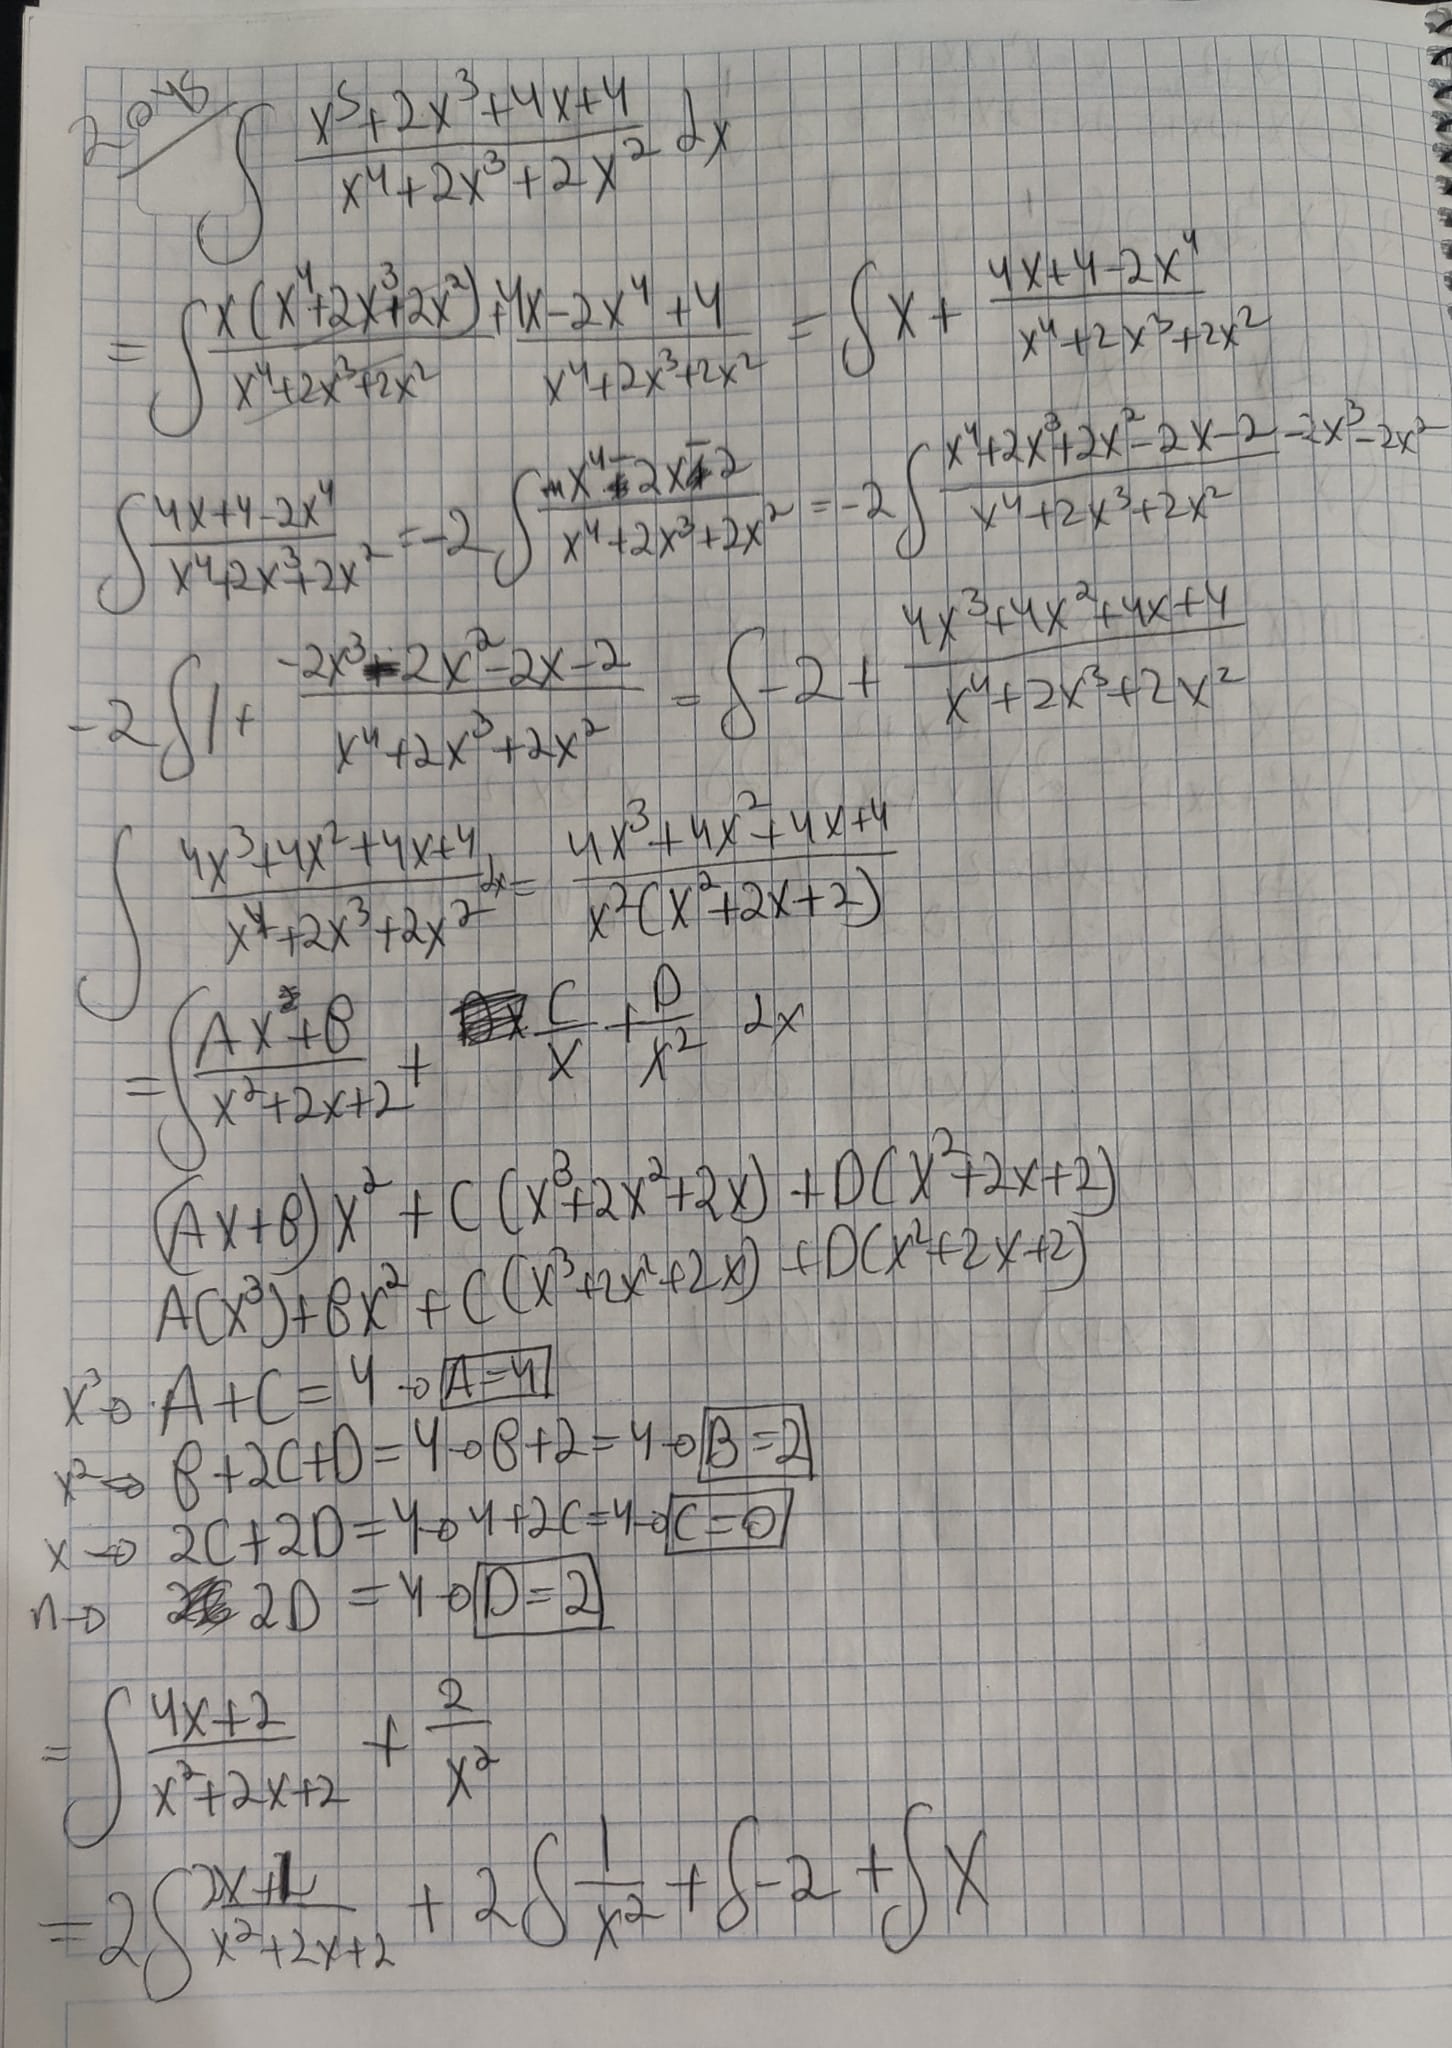 2045 ∫ (x^5+2x^3+4x+4)/(x^4+2x^3+2x^2) dx
= ∫ x(x^4+2x^3+2x^2)/(x^4+2x^3+2x^2) + (4x-2x^4+4)/(x^4+2x^3+2x^2) = ∫ x + (4x+4-2x^4)/(x^4+2x^3+2x^2)
∫ (4x+4-2x^4)/(x^4+2x^3+2x^2) = -2 ∫ (x^4-2x-2)/(x^4+2x^3+2x^2) = -2 ∫ (x^4+2x^3+2x^2-2x-2-2x^3-2x^2)/(x^4+2x^3+2x^2)
-2 ∫ 1 + (-2x^3-2x^2-2x-2)/(x^4+2x^3+2x^2) = ∫ -2 + (4x^3+4x^2+4x+4)/(x^4+2x^3+2x^2)
∫ (4x^3+4x^2+4x+4)/(x^4+2x^3+2x^2) dx = (4x^3+4x^2+4x+4)/(x^2(x^2+2x+2))
= ∫ (Ax+B)/(x^2+2x+2) + C/x + D/x^2 dx
(Ax+B)x^2 + C(x^3+2x^2+2x) + D(x^2+2x+2)
A(x^3)+Bx^2+C(x^3+2x^2+2x)+D(x^2+2x+2)
x^3→ A+C=4→A=4
x^2→ B+2C+D=4→B+2=4→B=2
x→ 2C+2D=4→4+2C=4→C=0
n→ 2D=4→D=2
= ∫ (4x+2)/(x^2+2x+2) + 2/x^2
= 2∫ (2x+1)/(x^2+2x+2) + 2∫ 1/x^2 + ∫-2 + ∫x